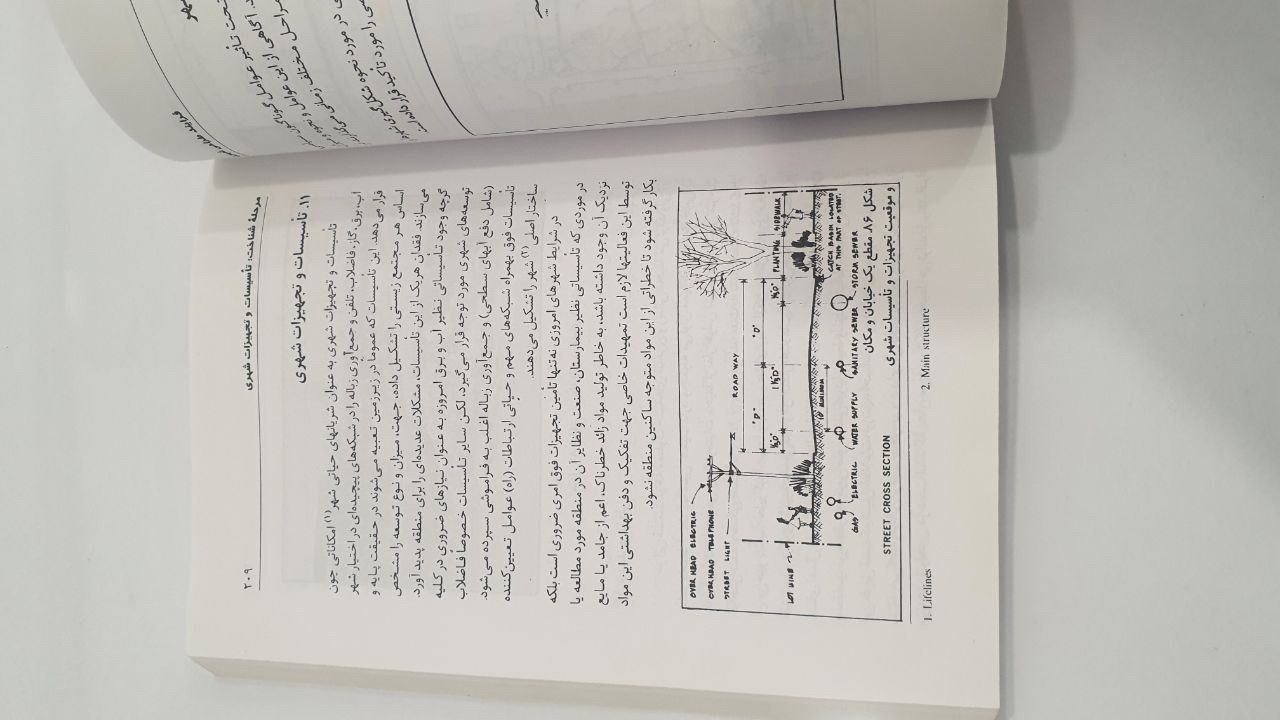 مرحلهٔ شناخت، تأسیسات و تجهیزات شهری
۲۰۹
۱۱. تأسیسات و تجهیزات شهری
تأسیسات و تجهیزات شهری به عنوان شریانهای حیاتی شهر(۱) امکاناتی چون
آب، برق، گاز، فاضلاب، تلفن و جمع‌آوری زباله را در شبکه‌های پیچیده‌ای در اختیار شهر
قرار می‌دهد. این تأسیسات که عموماً در زیرزمین تعبیه می‌شوند در حقیقت پایه و
اساس هر مجتمع زیستی را تشکیل داده، جهت، میزان و نوع توسعه را مشخص
می‌سازند. فقدان هریک از این تأسیسات، مشکلات عدیده‌ای را برای منطقه پدید آورد.
گرچه وجود تأسیساتی نظیر آب و برق امروزه به عنوان نیازهای ضروری در کلیه
توسعه‌های شهری مورد توجه قرار می‌گیرد، لکن سایر تأسیسات خصوصاً فاضلاب
(شامل دفع آبهای سطحی) و جمع‌آوری زباله اغلب به فراموشی سپرده می‌شود.
تأسیسات فوق بهمراه شبکه‌های مهم و حیاتی ارتباطات (راه) عوامل تعیین‌کننده
ساختار اصلی(۲) شهر را تشکیل می‌دهند.
در شرایط شهرهای امروزی نه‌تنها تأمین تجهیزات فوق امری ضروری است بلکه
در موردی که تأسیساتی نظیر بیمارستان، صنعت و نظایر آن در منطقه مورد مطالعه یا
نزدیک آن وجود داشته باشد، به خاطر تولید مواد زائد خطرناک، اعم از جامد یا مایع
توسط این فعالیتها لازم است تمهیدات خاصی جهت تفکیک و دفن بهداشتی این مواد
بکار گرفته شود تا خطراتی از این مواد متوجه ساکنین منطقه نشود.
OVER HEAD ELECTRIC
OVER HEAD TELEPHONE
STREET LIGHT
LOT LINE
ROAD WAY
PLANTING
SIDEWALK
"D"
"D"
½D"
1 ½D"
½D"
10' MINIMUM
GAS
ELECTRIC
WATER SUPPLY
SANITARY SEWER
STORM SEWER
CATCH BASIN LOCATED
AT THIS PART OF STREET.
STREET CROSS SECTION
شکل ۸۶. مقطع یک خیابان و مکان
و موقعیت تجهیزات و تأسیسات شهری
1. Lifelines
2. Main structure